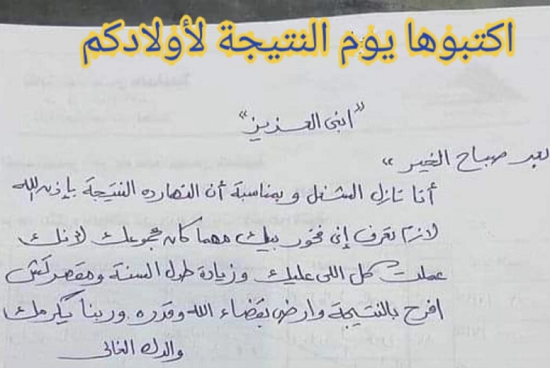 اكتبوها يوم النتيجة لأولادكم
"ابنى العزيز"
بعد صباح الخير،،
أنا نازل الشغل وبمناسبة أن النهارده النتيجة بإذن الله
لازم تعرف إنى فخور بيك مهما كان مجموعك لأنك
عملت كل اللى عليك وزيادة طول السنة ومقصرتش
افرح بالنتيجة وارضى بقضاء الله وقدره وربنا يكرمك
والدك الغالى